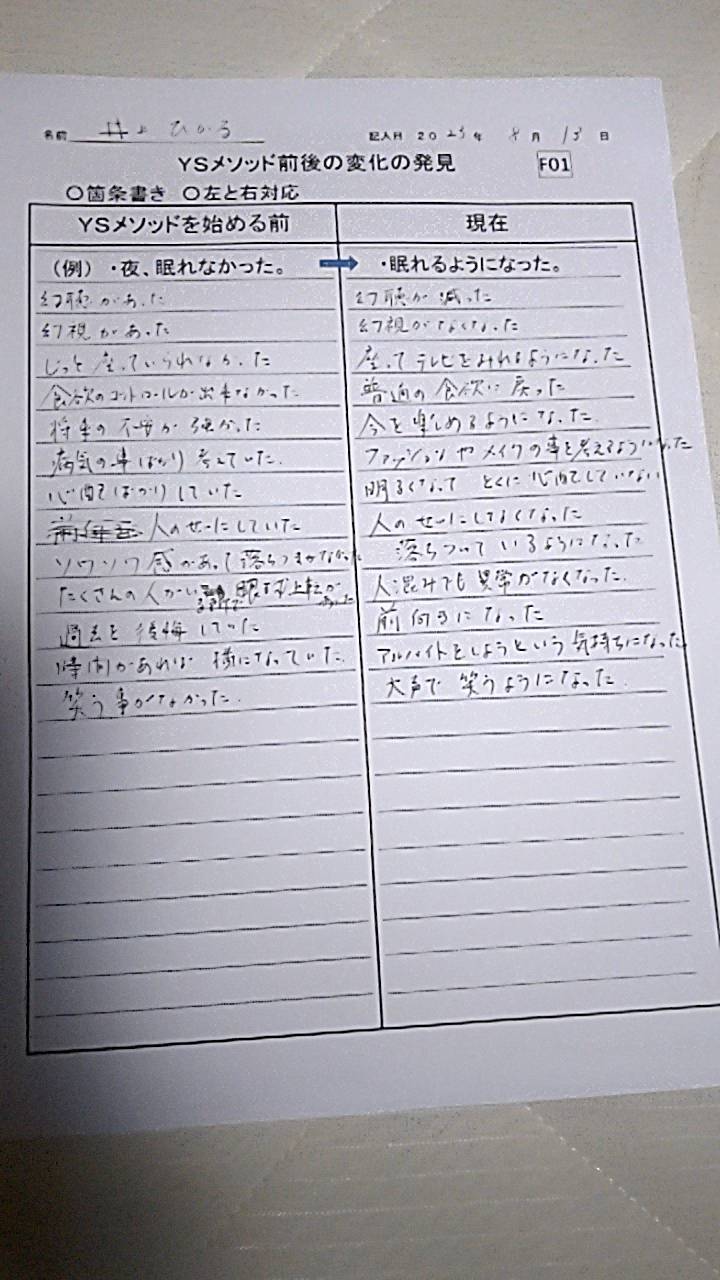 名前 井上 ひかる 記入日 2025年 8月 15日
YSメソッド前後の変化の発見 F01
○箇条書き ○左と右対応
YSメソッドを始める前 現在
(例) ・夜、眠れなかった。 → ・眠れるようになった。
幻聴があった 幻聴が減った
幻視があった 幻視がなくなった
じっと座っていられなかった 座ってテレビをみれるようになった
食欲のコントロールが出来なかった 普通の食欲に戻った
将来の不安が強かった 今を楽しめるようになった
病気の事ばかり考えていた。 ファッションやメイクの事を考えるようになった
心配ばかりしていた 明るくなって とくに心配していない
人のせいにしていた 人のせいにしなくなった
ソワソワ感があって落ちつかなかった 落ちついているようになった
たくさんの人がい 眼球上転があった 人混みでも異常がなくなった。
過去を後悔していた 前向きになった
時間があれば 横になっていた。 アルバイトをしようという気持ちになった
笑う事がなかった。 大声で笑うようになった。